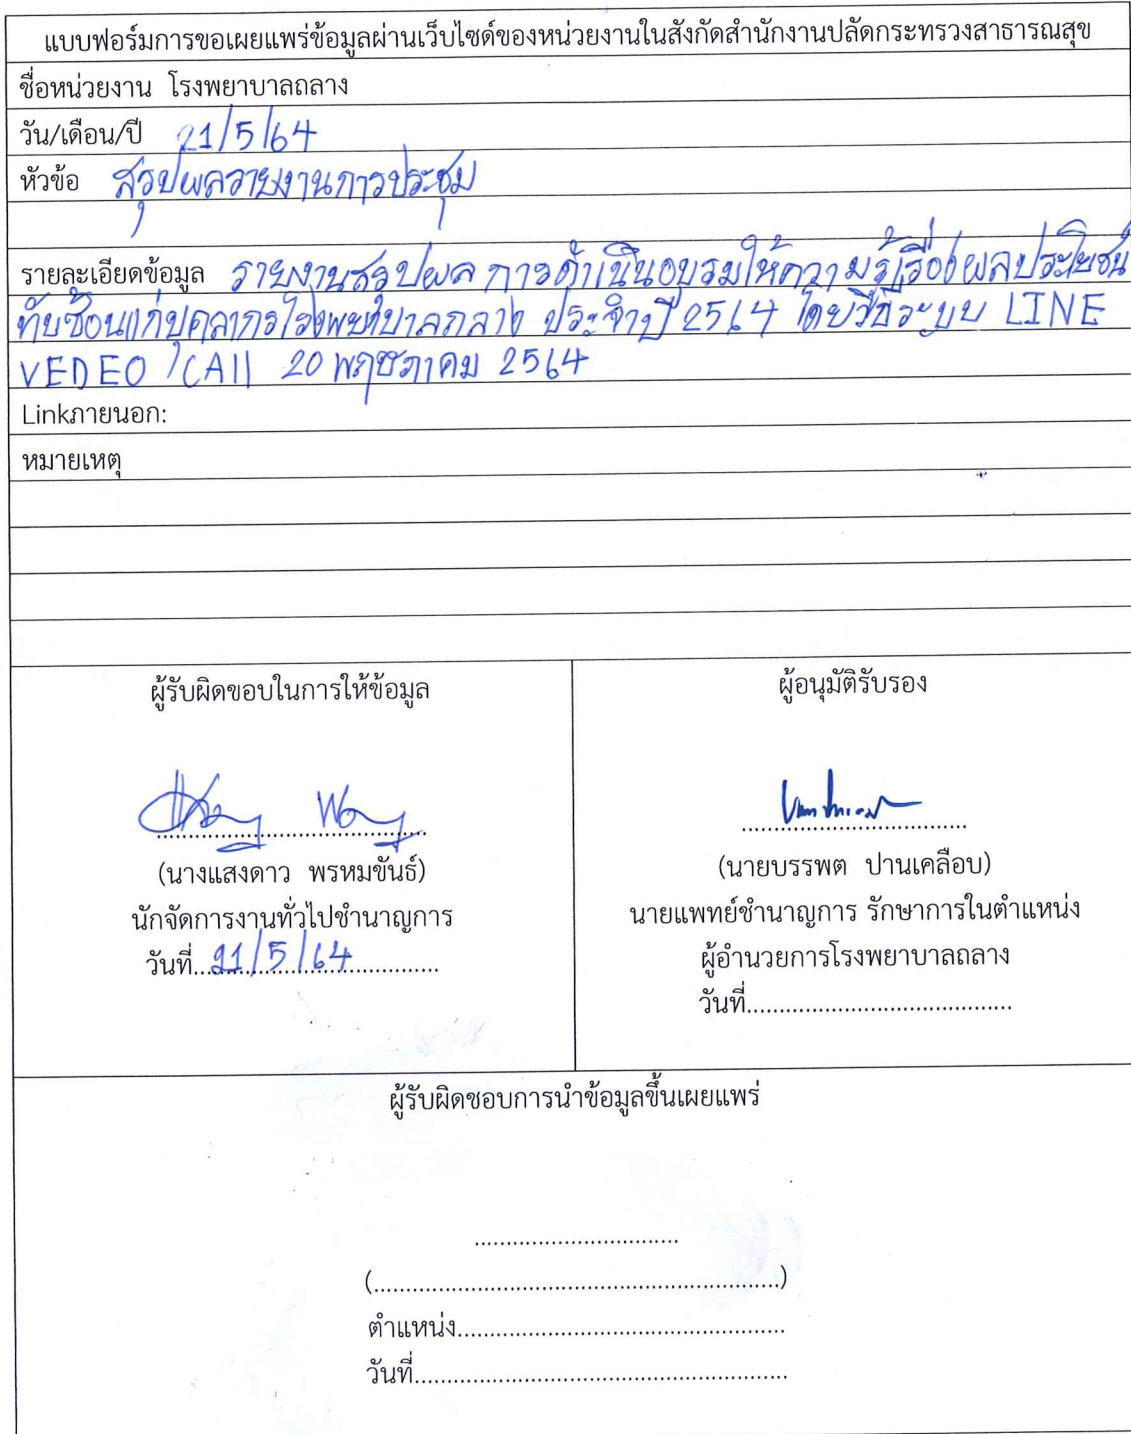 แบบฟอร์มการขอเผยแพร่ข้อมูลผ่านเว็บไซด์ของหน่วยงานในสังกัดสำนักงานปลัดกระทรวงสาธารณสุข
ชื่อหน่วยงาน โรงพยาบาลถลาง
วัน/เดือน/ปี 21/5/64
หัวข้อ สรุปผลรายงานการประชุม
รายละเอียดข้อมูล รายงานสรุปผล การดำเนินอบรมให้ความรู้เรื่องผลประโยชน์
ทับซ้อนแก่บุคลากรโรงพยาบาลถลาง ประจำปี 2564 โดยวิธีระบบ LINE
VEDEO CAll 20 พฤษภาคม 2564
Linkภายนอก:
หมายเหตุ
ผู้รับผิดขอบในการให้ข้อมูล
(นางแสงดาว พรหมขันธ์)
นักจัดการงานทั่วไปชำนาญการ
วันที่..21/5/64..............
ผู้อนุมัติรับรอง
(นายบรรพต ปานเคลือบ)
นายแพทย์ชำนาญการ รักษาการในตำแหน่ง
ผู้อำนวยการโรงพยาบาลถลาง
วันที่..........................................
ผู้รับผิดชอบการนำข้อมูลขึ้นเผยแพร่
................................
(................................................................)
ตำแหน่ง....................................................
วันที่...........................................................